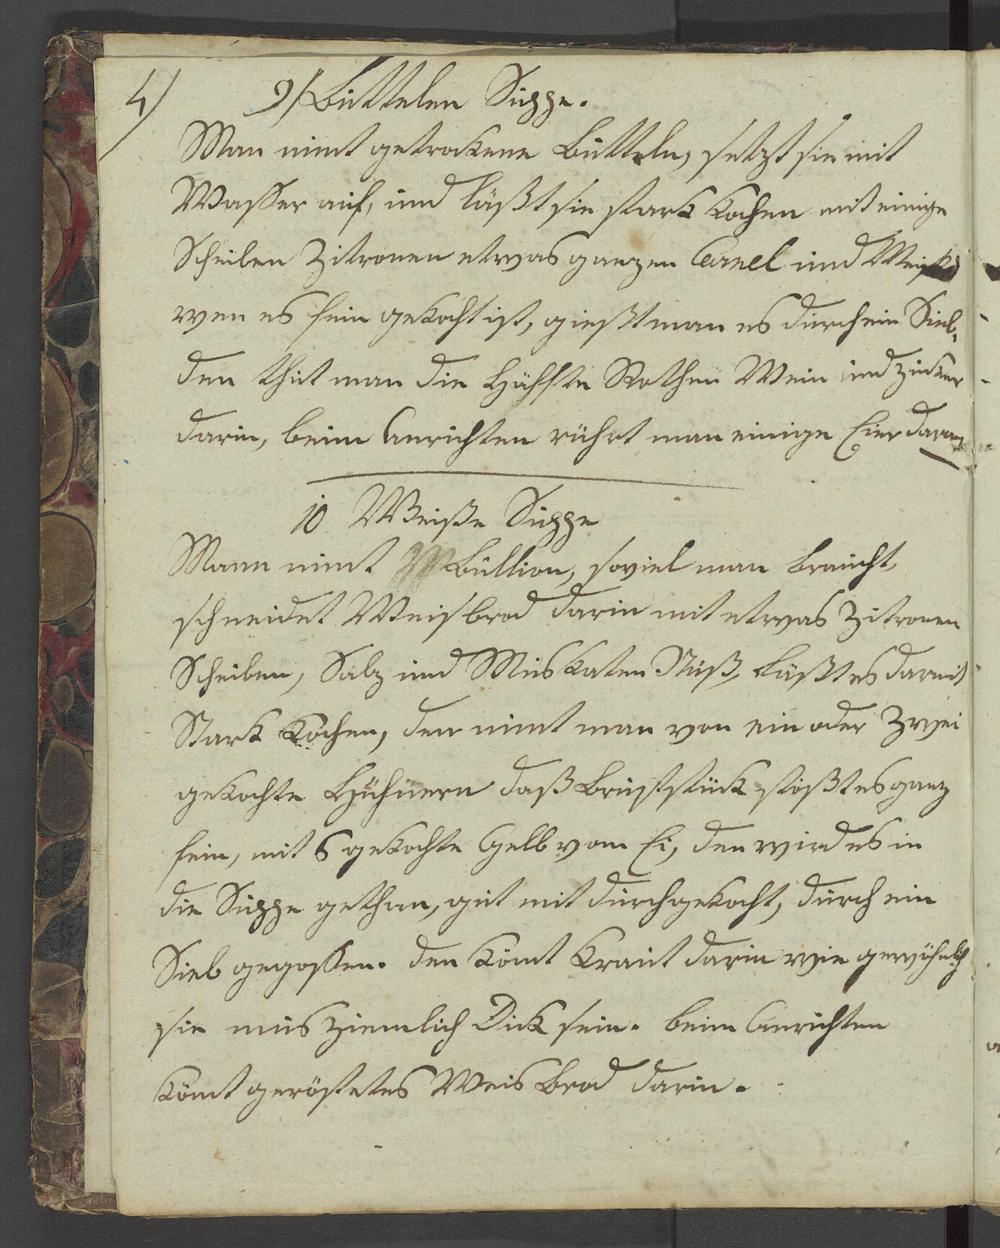 4)
9) Büttelen Suppe.
Man nimt getrockene Bütteln, setzt sie mit
Wasser auf, und läßt sie stark kochen mit einige
Scheiben Zitronen etwas ganzen Canel und
wen es fein gekocht ist, gießt man es durch ein Sieb,
den thut man die Hälfte Rothen Wein und Zucker
darin, beim Anrichten rührt man einige Eier daran
10 Weiße Suppe
Mann nimt Bullion, soviel man braucht,
schneidet Weisbrod darin mit etwas Zitronen
Scheiben, Salz und Muskaten Nuß, läßt es damit
Stark kochen, den nimt man von ein oder Zwei
gekochte Hühnern daß Bruststück stößt es ganz
fein, mit 6 gekochte Gelb vom Ei, den wird es in
die Suppe gethan, gut mit durchgekocht, durch ein
Sieb gegossen. den komt Kraut darin wie gewöhnlich
sie mus ziemlich Dick sein. beim Anrichten
komt geröstetes Weis Brod darin.